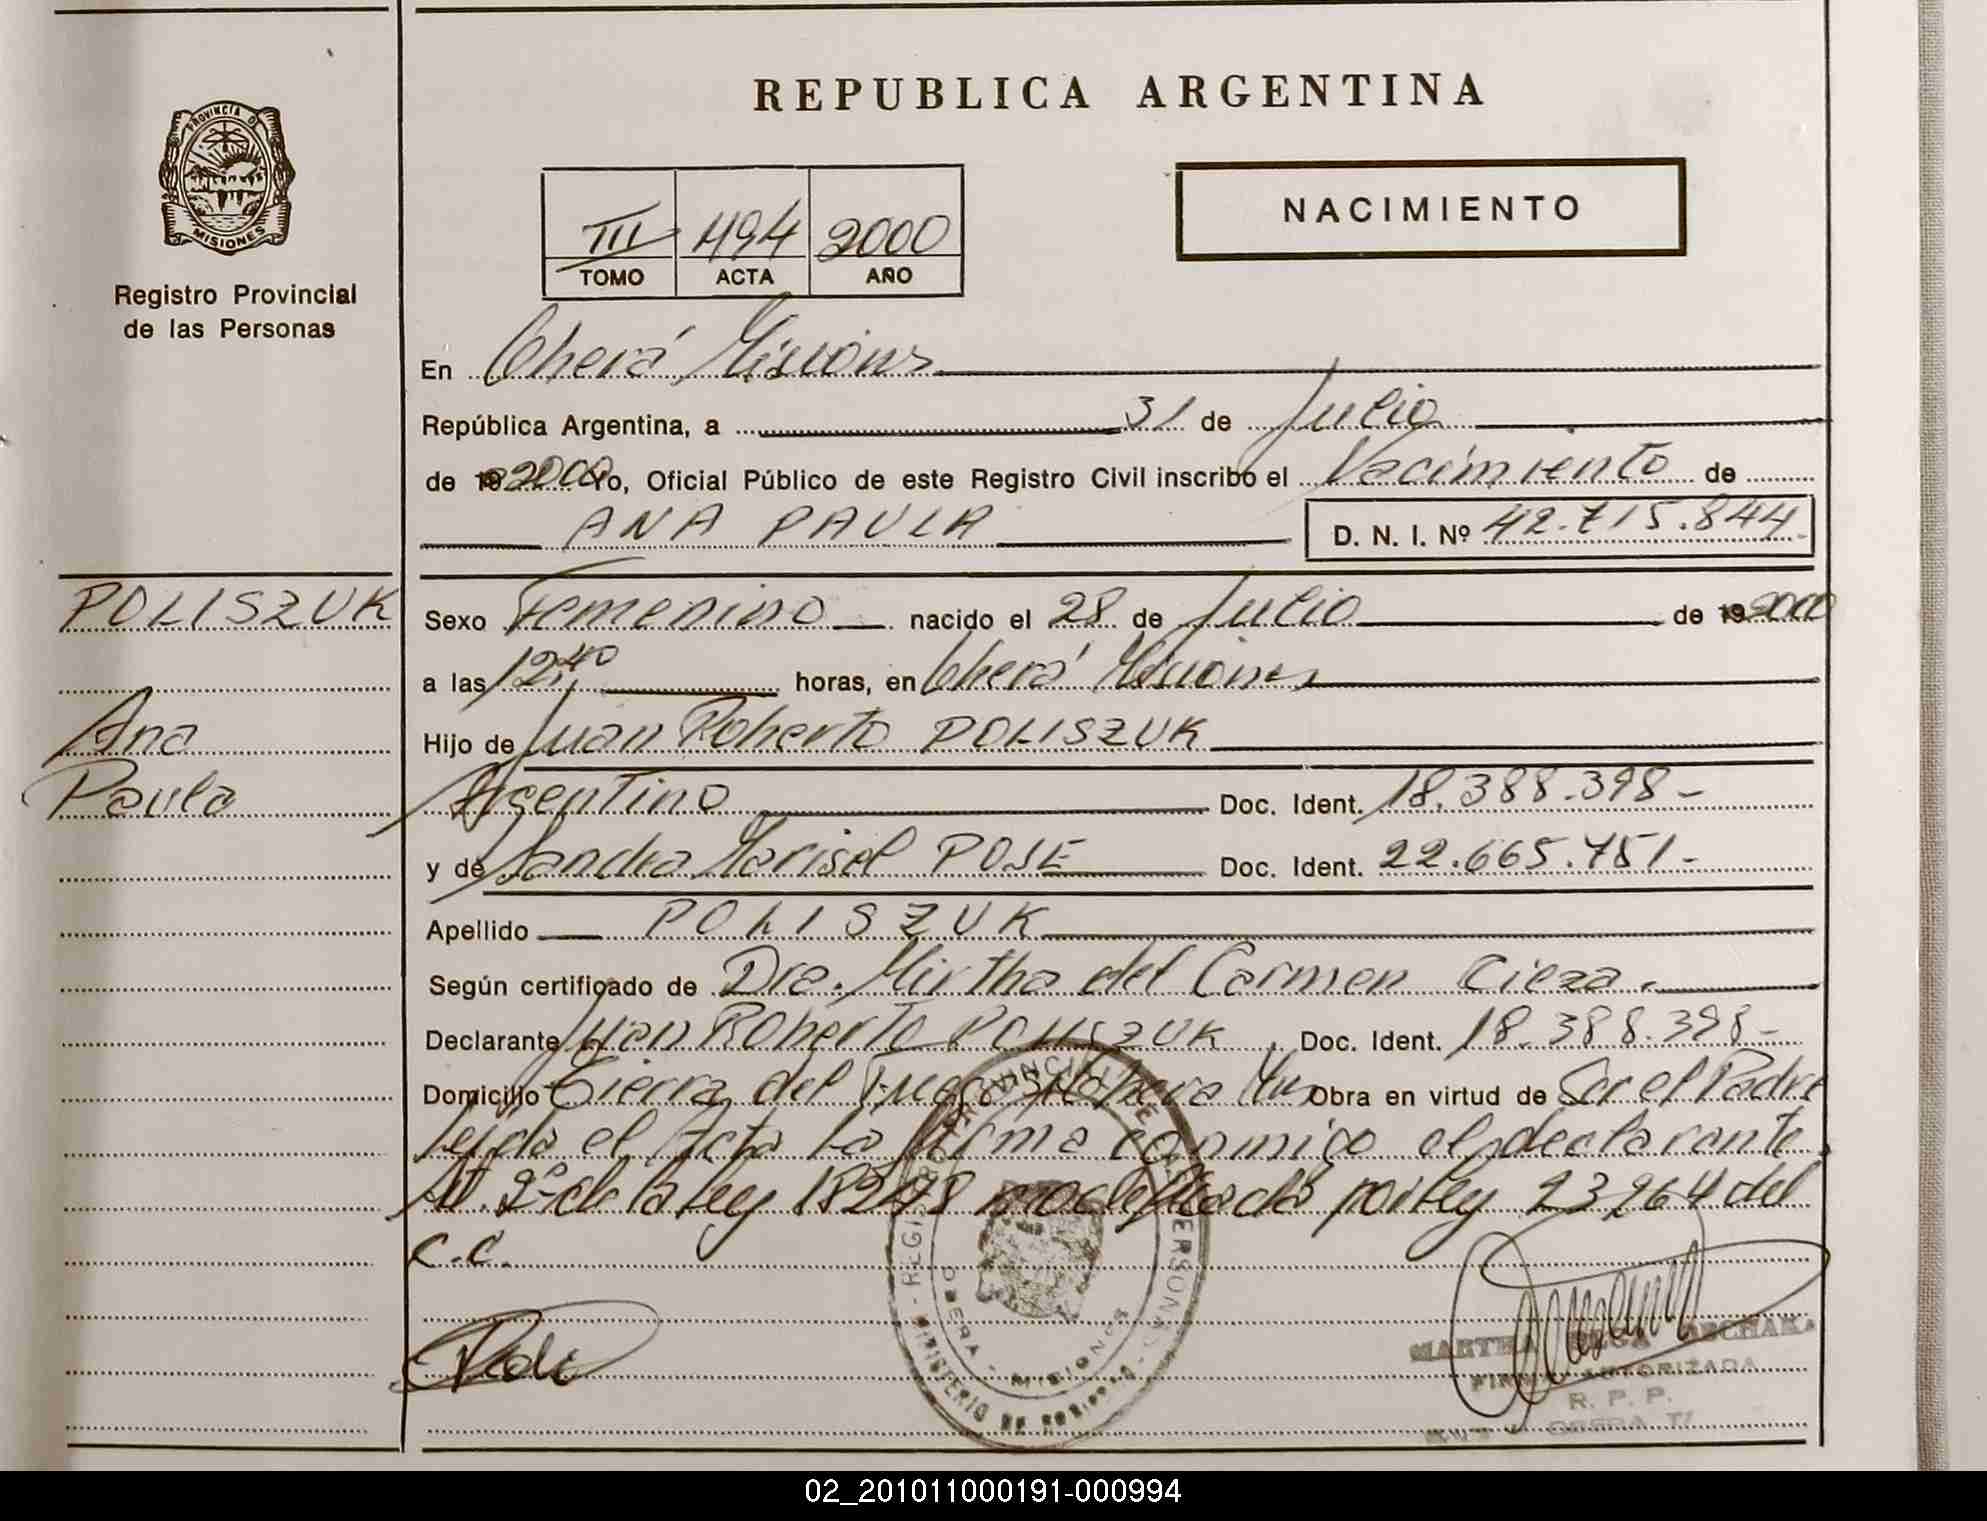 PROVINCIA D
MISIONES
Registro Provincial
de las Personas
REPUBLICA ARGENTINA
III 494 2000
TOMO ACTA AÑO
NACIMIENTO
En Oberá Misiones
República Argentina, a 31 de Julio
de 19 2000 Yo, Oficial Público de este Registro Civil inscribo el Nacimiento de
ANA PAULA D. N. I. Nº 42.715.844
POLISZUK
Ana
Paula
Sexo Femenino nacido el 28 de Julio de 19 2000
a las 12,40 horas, en Oberá Misiones
Hijo de Juan Roberto POLISZUK
Argentino Doc. Ident. 18.388.398-
y de Sandra Marisel POSE Doc. Ident. 22.665.751-
Apellido POLISZUK
Según certificado de Dra. Mirtha del Carmen Cieza.
Declarante Juan Roberto POLISZUK Doc. Ident. 18.388.398-
Domicilio Tierra del Fuego Oberá Mns Obra en virtud de Ser el Padre
Leída el Acta la firma conmigo el declarante.
Art. 2º de la ley 18248 modificada por ley 23264 del
C.C.
REGISTRO PROVINCIAL DE LAS PERSONAS
MINISTERIO DE
OBERA - MISIONES
MARTHA
FIRMA AUTORIZADA
R. P. P.
OBERA
02_201011000191-000994